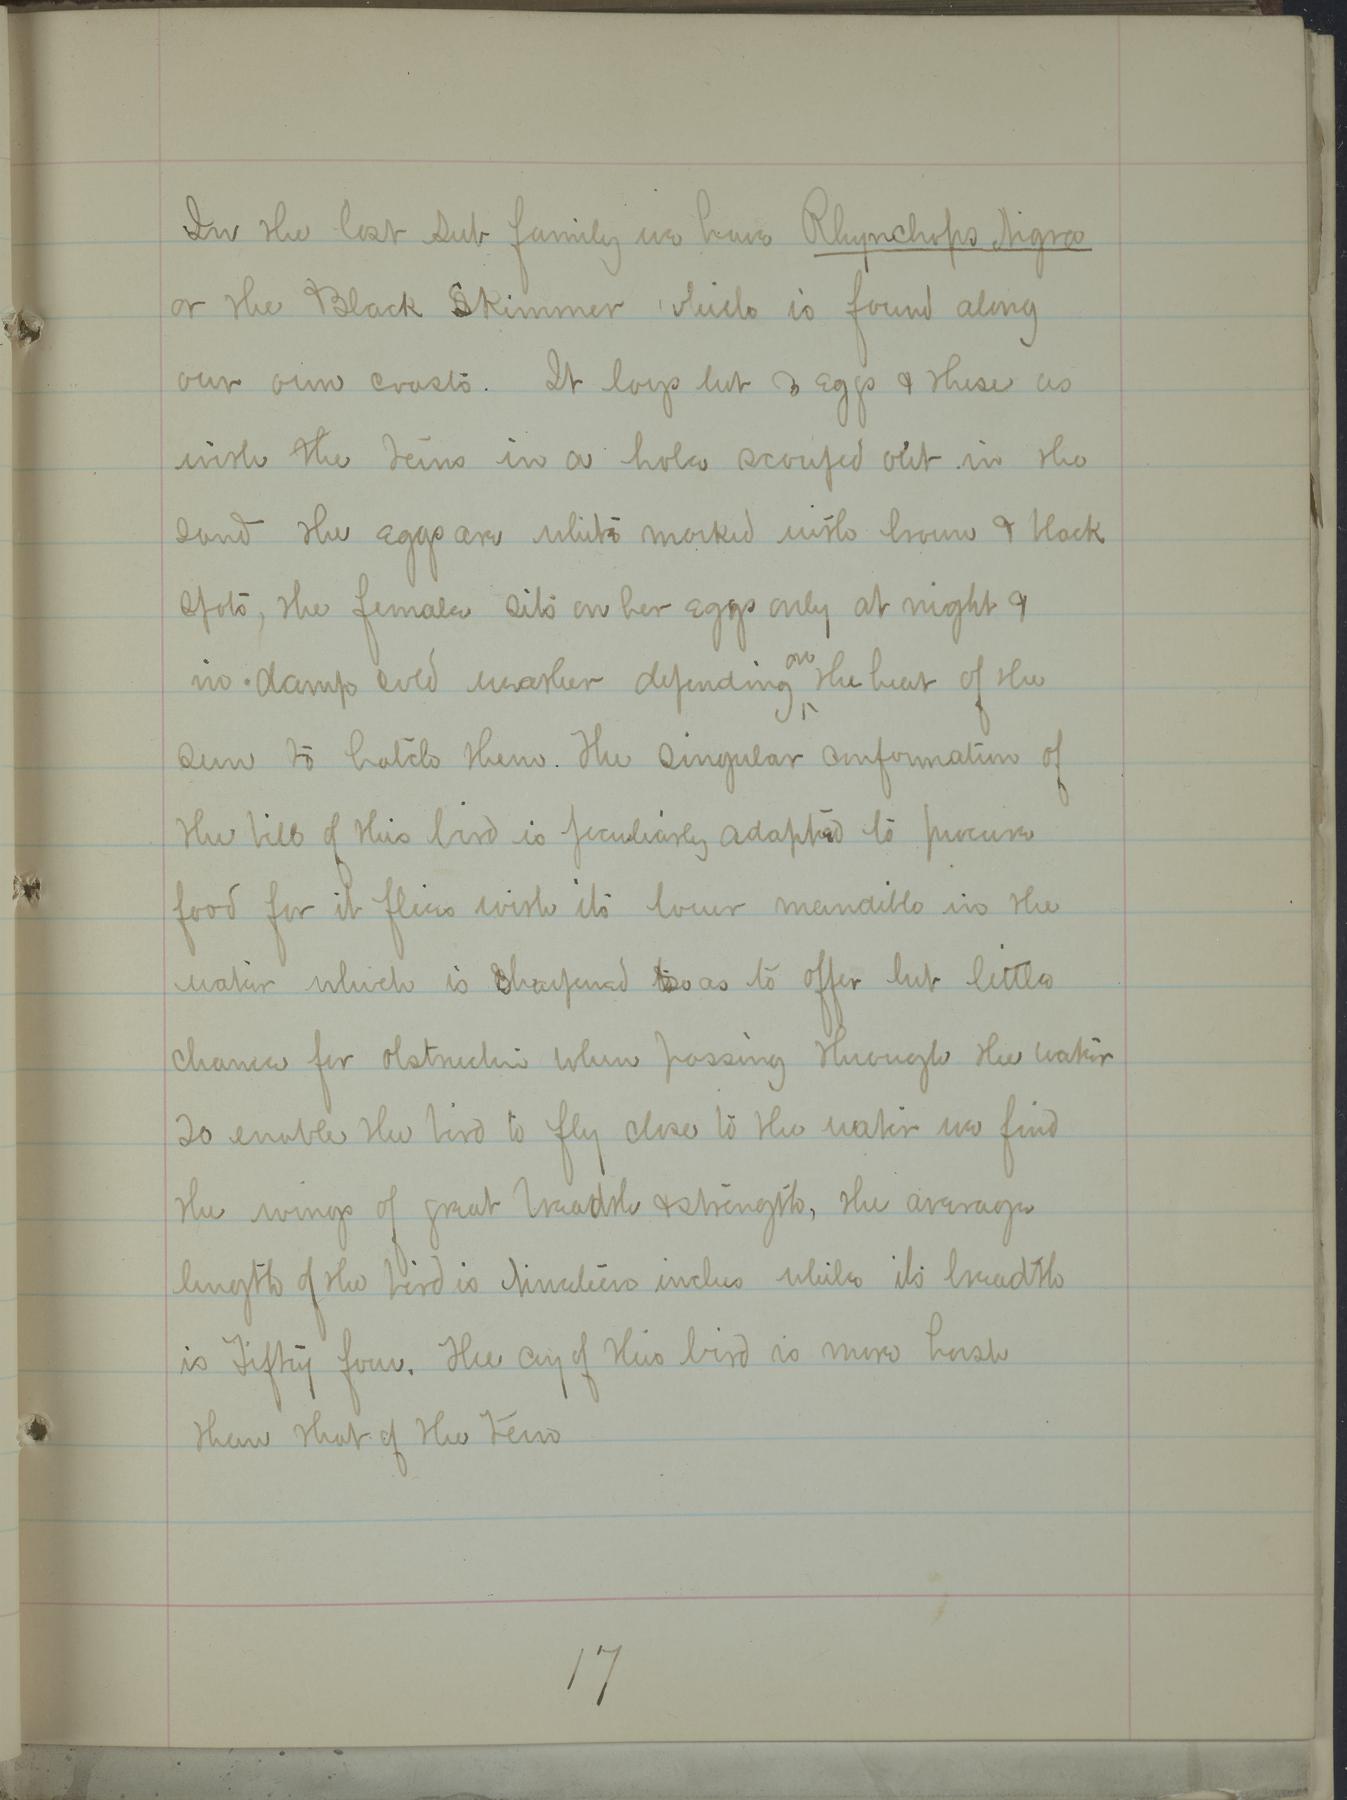 In the last sub family we have Rhynchops Nigra
or the Black Skimmer which is found along
our own coasts. It lays but 3 eggs & these as
with the Terns in a hole scouped out in the
sand the eggs are white marked with brown & black
spots, the female sits on her eggs only at night &
in damp cold weather depending on the heat of the
sun to hatch them. The singular conformation of
the bill of this bird is peculiarly adapted to procure
food for it flies with its lower mandible in the
water which is sharpened so as to offer but little
chance for obstruction when passing through the water
To enable the bird to fly close to the water we find
the wings of great breadth & strength, the average
length of the bird is Nineteen inches while its breadth
is Fifty four. The cry of this bird is more harsh
than that of the Tern
17